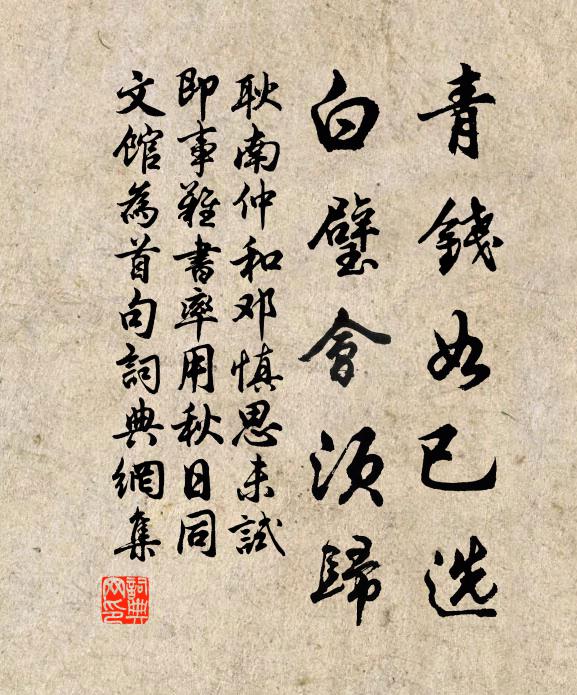 青錢如已选
白璧會須歸
耿南仲和邓慎思未試
即事難書率用秋日同
文館為首句詞典網集
詞典
网印